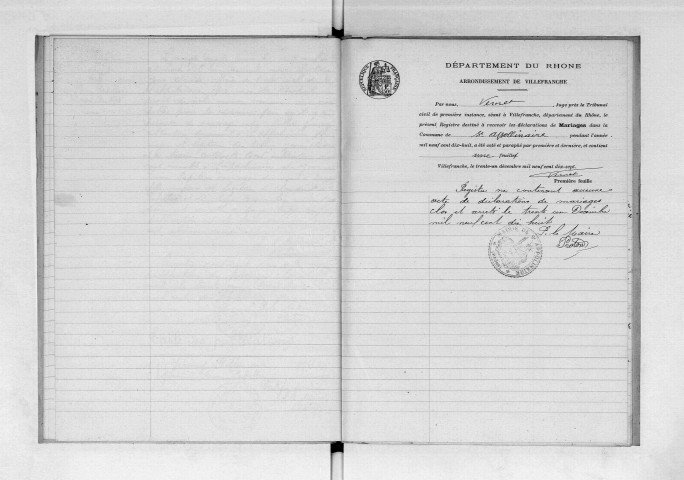 DÉPARTEMENT DU RHÔNE
ARRONDISSEMENT DE VILLEFRANCHE
Par nous, Vernet, Juge près le Tribunal
civil de première instance, séant à Villefranche, département du Rhône, le
présent Registre destiné à recevoir les déclarations de Mariages dans la
Commune de St Apollinaire pendant l'année
mil neuf cent dix-huit, a été coté et paraphé par première et dernière, et contient
feuillet
Villefranche, le trente-un décembre mil neuf cent dix-sept.
Vernet
Première feuille
Registre ne contenant aucune
acte de déclarations de mariages
clos et arrêté le trente un Décembre
mil neuf cent dix huit
P. le Maire